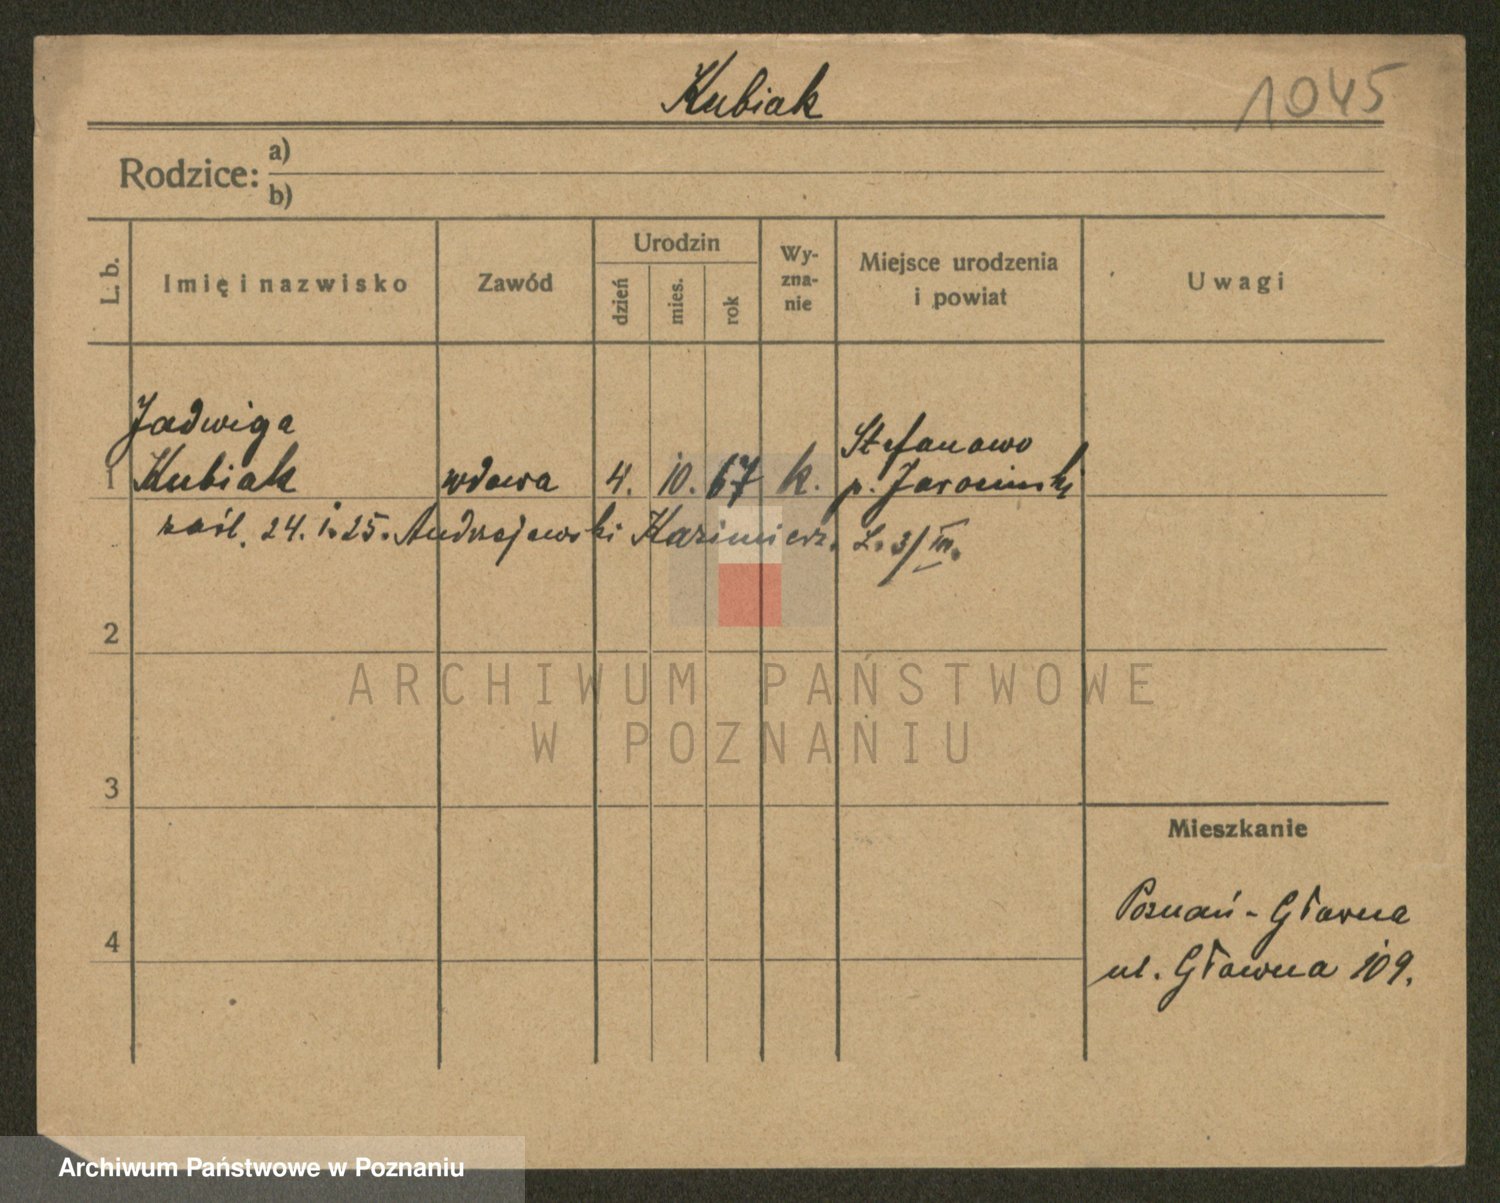 Kubiak
1045
Rodzice: a)
b)
L. b.
Imię i nazwisko
Zawód
Urodzin
dzień
mies.
rok
Wy-
zna-
nie
Miejsce urodzenia
i powiat
Uwagi
Jadwiga
1 Kubiak wdowa 4. 10. 67 k.
Stefanowo
p. Jarocinski
zaśl. 24. 1. 25. Andrzejewski Kazimierz. L. 3/III.
2
ARCHIWUM PAŃSTWOWE
W POZNANIU
3
Mieszkanie
Poznań - Główna
4
ul. Główna 109.
Archiwum Państwowe w Poznaniu